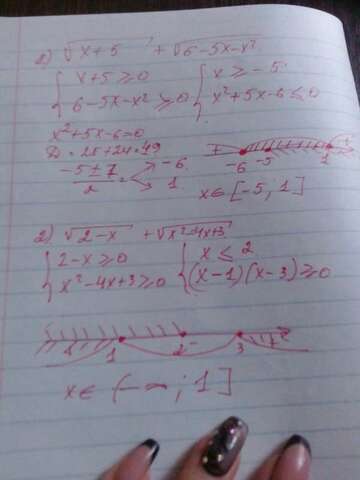 1) √x+5 + √6-5x-x²
{ x+5 ≥ 0 { x ≥ -5
6-5x-x² ≥ 0 x²+5x-6 ≤ 0
x²+5x-6=0
D = 25+24=49
-5±7 / 2 = -6
1
-6 -5 1
x∈[-5; 1]
2) √2-x + √x²-4x+3
{ 2-x ≥ 0 { x ≤ 2
x²-4x+3 ≥ 0 (x-1)(x-3) ≥ 0
1 2 3
x∈(-∞; 1]